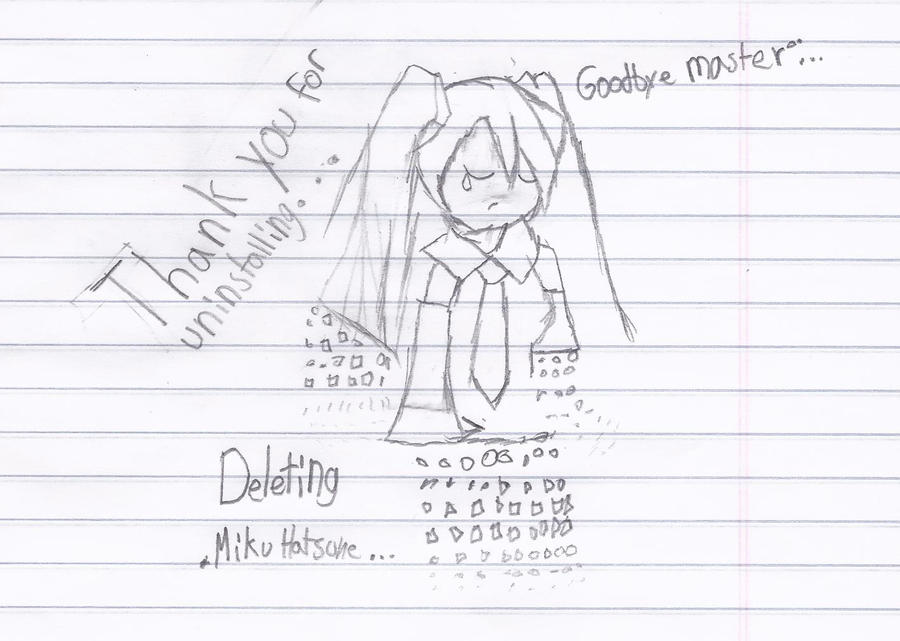 Goodbye master...
Thank you for
uninstalling...
Deleting
.Miku Hatsune...